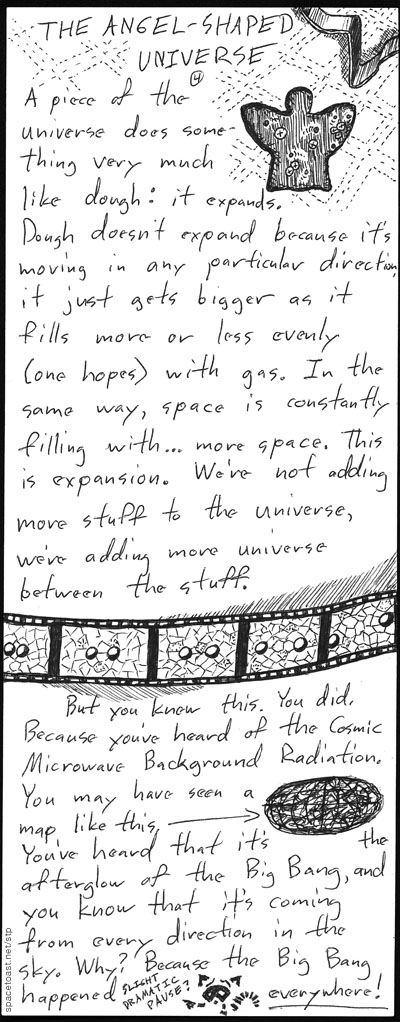 THE ANGEL-SHAPED
UNIVERSE
4
A piece of the
universe does some-
thing very much
like dough: it expands.
Dough doesn't expand because it's
moving in any particular direction,
it just gets bigger as it
fills more or less evenly
(one hopes) with gas. In the
same way, space is constantly
filling with... more space. This
is expansion. We're not adding
more stuff to the universe,
we're adding more universe
between the stuff.
But you knew this. You did.
Because you've heard of the Cosmic
Microwave Background Radiation.
You may have seen a
map like this.
You've heard that it's the
afterglow of the Big Bang, and
you know that it's coming
from every direction in the
sky. Why? Because the Big Bang
happened
SLIGHT
DRAMATIC
PAUSE?
everywhere!
spacetoast.net/stp